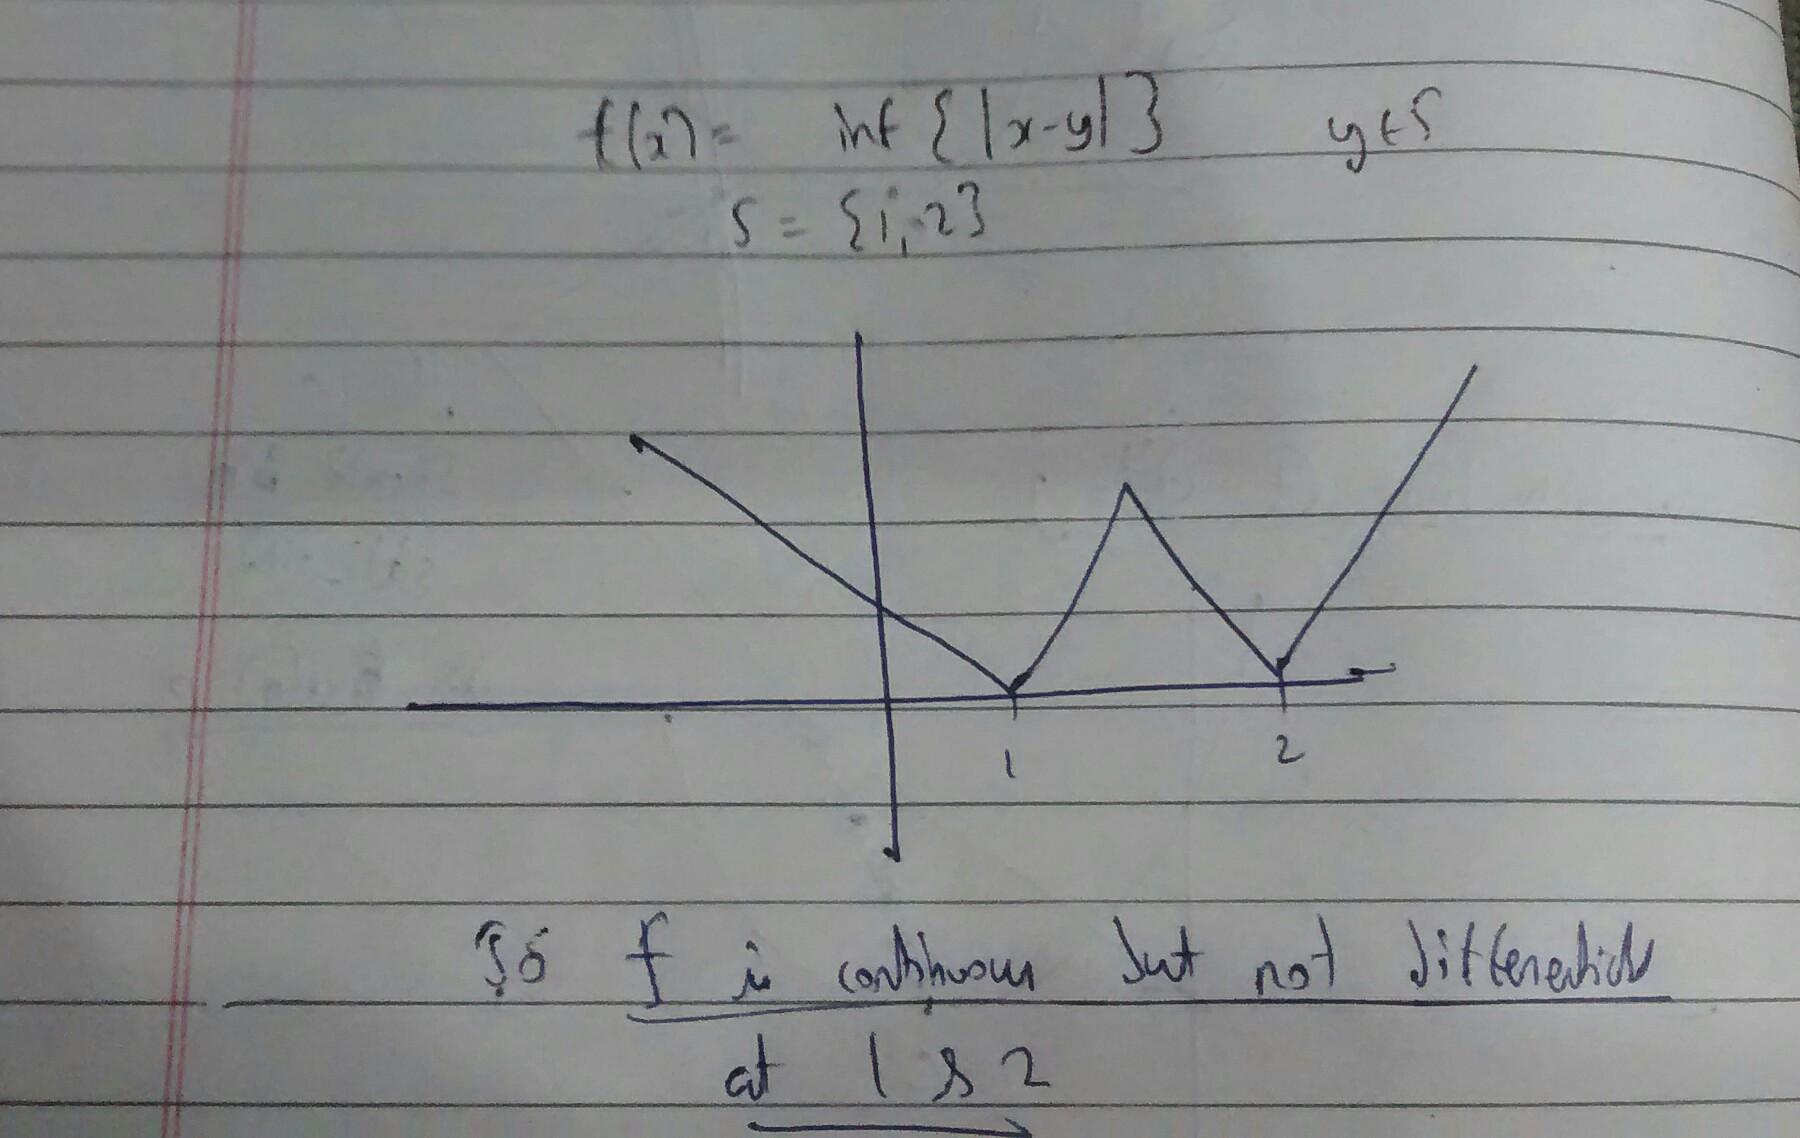 f(x) = inf {|x-y|} y ∈ S
S = {1, 2}
1 2
So f is continuous but not differentiable
at 1 & 2